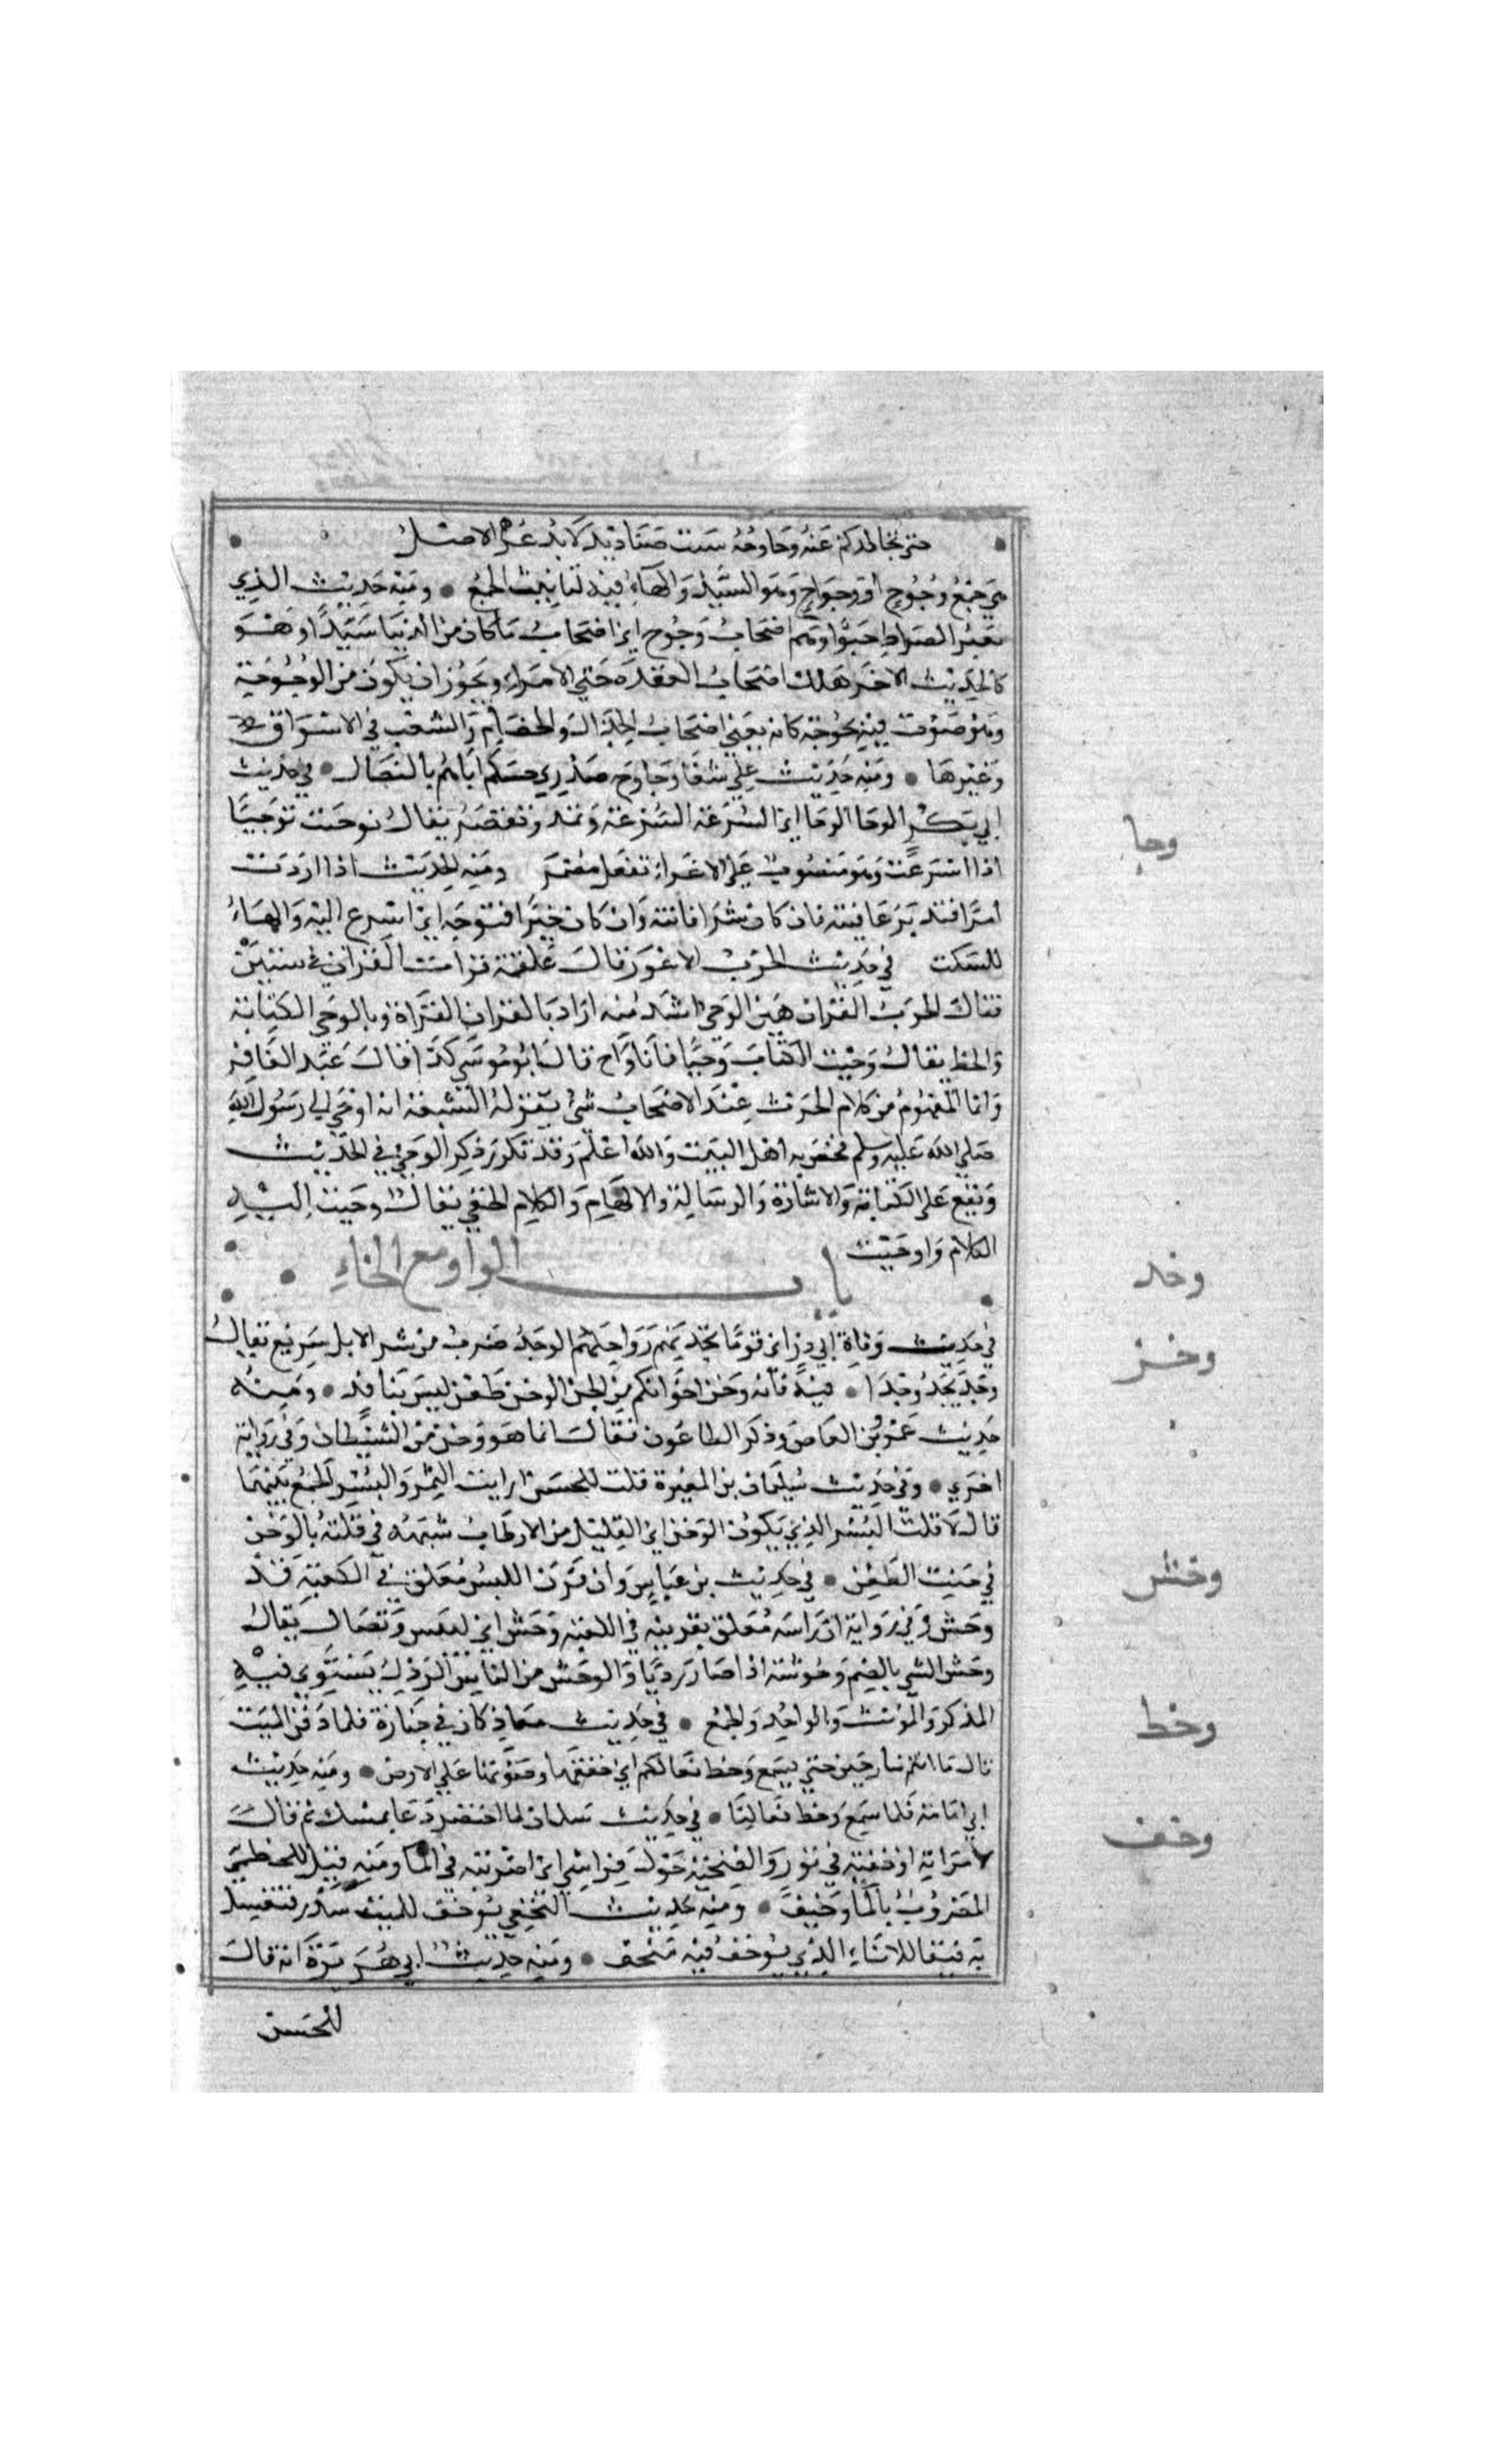 حتى تجالدكم عنه وحاوحه ست صناديد لا بد عن الاصل
هي جمع وجوح أو وجواح وهو السيد والهاء فيه لتانيث الجمع ومنه حديث الذي
يعبر الصراط حبوا وهم اصحاب وحوح اي اصحاب من كان من الدنيا سيدا وهو
كالحديث الاخر هلك اصحاب العقدة حتى الامراء ويجوز ان يكون من الوحوحة
وهو صوت فيه بحوحة كانه يعني اصحاب الجدال والخصام والشغب في الاسواق
وغيرها ومنه حديث علي شفا وحاوح صدري حسكم اياهم بالنصال في حديث
ابي بكر الوحا الوحا اي السرعة السرعة ويمد ويقصر يقال توحيت توحيا
اذا اسرعت وهو منصوب على الاغراء بفعل مضمر ومنه الحديث اذا اردت
امرا فتدبر عاقبته فان كان شرا فانته وان كان خيرا فتوحه اي اسرع اليه والهاء
للسكت في حديث الحرث الاعور قال علقمة قرات القران في سنتين
فقال الحرث القران هين الوحي اشد منه اراد بالقران القراة وبالوحي الكتابة
والخط يقال وحيت الكتاب وحيا فانا واح قال ابو موسى كذا قال عبد الغافر
وانما المفهوم من كلام الحرث عند الاصحاب شي يقوله الشيعة انه اوحي الى رسول الله
صلي الله عليه وسلم فخص به اهل البيت والله اعلم وقد تكرر ذكر الوحي في الحديث
ويقع على الكتابة والاشارة والرسالة والالهام والكلام الخفي يقال وحيت اليه
الكلام واوحيت
باب الواو مع الخاء
في حديث وفاة ابي ذر اى قوما تخد بهم رواحلهم الوخد ضرب من سير الابل سريع يقال
وخد يخد وخدا فيه فانه وخز اخوانكم من الجن الوخز طعن ليس بنافذ ومنه
حديث عمرو بن العاص وذكر الطاعون فقال انما هو وخز من الشيطان وفي رواية
اخرى وفي حديث سليمان بن المغيرة قلت للحسن ارايت التمر والبسر الجمع بينهما
قال لا قلت البسر الذي يكون الوخز اي القليل من الارطاب شبهه في قلته بالوخز
في جنب الطعن في حديث بن عباس وان قرن الكبش معلق في الكعبة قد
وخش وفي رواية ان راسه معلق بقرنيه في الكعبة وخش اي يبس وتضال يقال
وخش الشي بالضم وخوشة اذا صار رديا والوخش من الناس الرذل يستوي فيه
المذكر والمونث والواحد والجمع في حديث معاذ كان في جنازة فلما دفن الميت
قال ما انتم ببارحين حتى يسمع وخط نعالكم اي خفقها وصوتها على الارض ومنه حديث
ابي امامة فلما سمع وخط نعالنا في حديث سلمان لما احتضر دعا بمسك ثم قال
لامراته اوخفيه في تور وانضحيه حول فراشي اي اضربيه في الما ومنه قيل للخطمي
المضروب بالما وخيف ومنه حديث النخعي يوخف للميت سدر فيغسل
به فيقال للاناء الذي يوخف فيه ميخف ومنه حديث ابي هريرة انه قال
للحسن
وحا
وخد
وخز
وخش
وخط
وخف